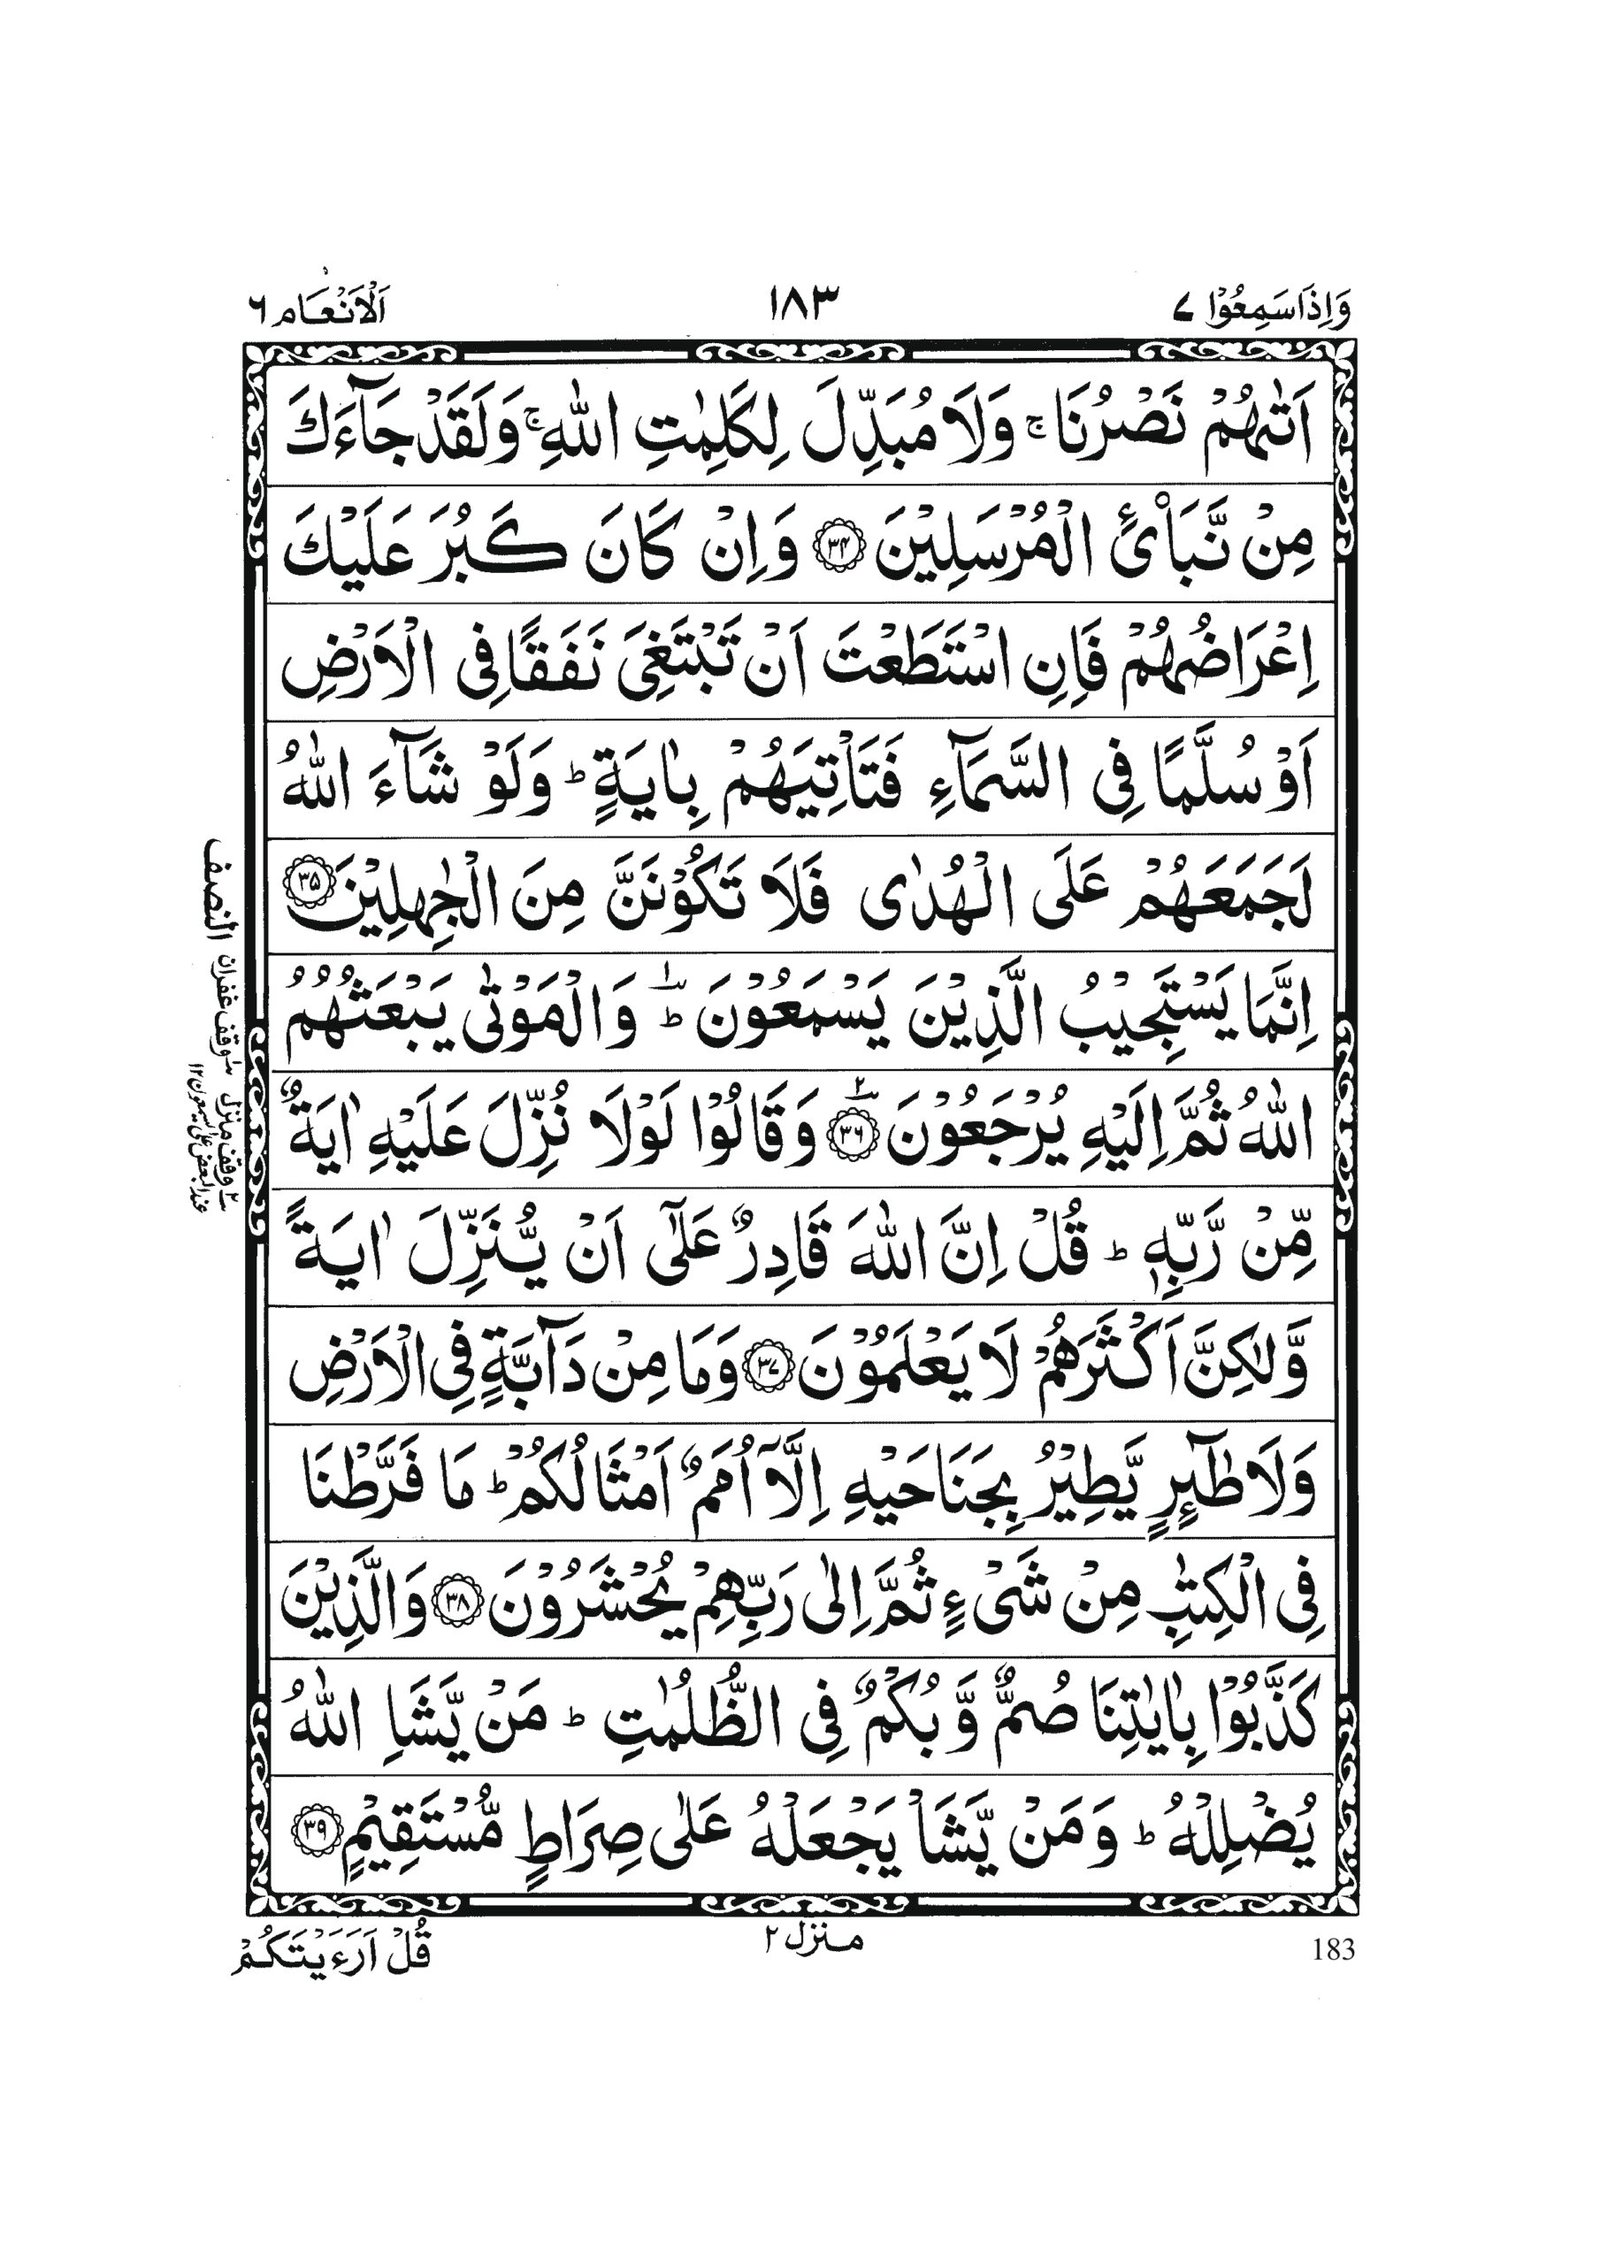 وَاِذَا سَمِعُوْا ٧
١٨٣
اَلْاَنْعَام ٦
اَتٰىهُمْ نَصْرُنَا ۚ وَلَا مُبَدِّلَ لِكَلِمٰتِ اللّٰهِ ۚ وَلَقَدْ جَآءَكَ
مِنْ نَّبَاِى۟ الْمُرْسَلِيْنَ ﴿۳۴﴾ وَاِنْ كَانَ كَبُرَ عَلَيْكَ
اِعْرَاضُهُمْ فَاِنِ اسْتَطَعْتَ اَنْ تَبْتَغِىَ نَفَقًا فِى الْاَرْضِ
اَوْ سُلَّمًا فِى السَّمَآءِ فَتَاْتِيَهُمْ بِاٰيَةٍ ؕ وَلَوْ شَآءَ اللّٰهُ
لَجَمَعَهُمْ عَلَى الْهُدٰى فَلَا تَكُوْنَنَّ مِنَ الْجٰهِلِيْنَ ﴿۳۵﴾
اِنَّمَا يَسْتَجِيْبُ الَّذِيْنَ يَسْمَعُوْنَ ؕ وَالْمَوْتٰى يَبْعَثُهُمُ
اللّٰهُ ثُمَّ اِلَيْهِ يُرْجَعُوْنَ ﴿۳۶﴾ وَقَالُوْا لَوْلَا نُزِّلَ عَلَيْهِ اٰيَةٌ
مِّنْ رَّبِّهٖ ؕ قُلْ اِنَّ اللّٰهَ قَادِرٌ عَلٰٓى اَنْ يُّنَزِّلَ اٰيَةً
وَّلٰكِنَّ اَكْثَرَهُمْ لَا يَعْلَمُوْنَ ﴿۳۷﴾ وَمَا مِنْ دَآبَّةٍ فِى الْاَرْضِ
وَلَا طٰٓئِرٍ يَّطِيْرُ بِجَنَاحَيْهِ اِلَّآ اُمَمٌ اَمْثَالُكُمْ ؕ مَا فَرَّطْنَا
فِى الْكِتٰبِ مِنْ شَىْءٍ ثُمَّ اِلٰى رَبِّهِمْ يُحْشَرُوْنَ ﴿۳۸﴾ وَالَّذِيْنَ
كَذَّبُوْا بِاٰيٰتِنَا صُمٌّ وَّبُكْمٌ فِى الظُّلُمٰتِ ؕ مَنْ يَّشَاِ اللّٰهُ
يُضْلِلْهُ ؕ وَمَنْ يَّشَاْ يَجْعَلْهُ عَلٰى صِرَاطٍ مُّسْتَقِيْمٍ ﴿۳۹﴾
النصف
وقف غفران
وقف منزل
منزل ٢
183
قُلْ اَرَءَيْتَكُمْ